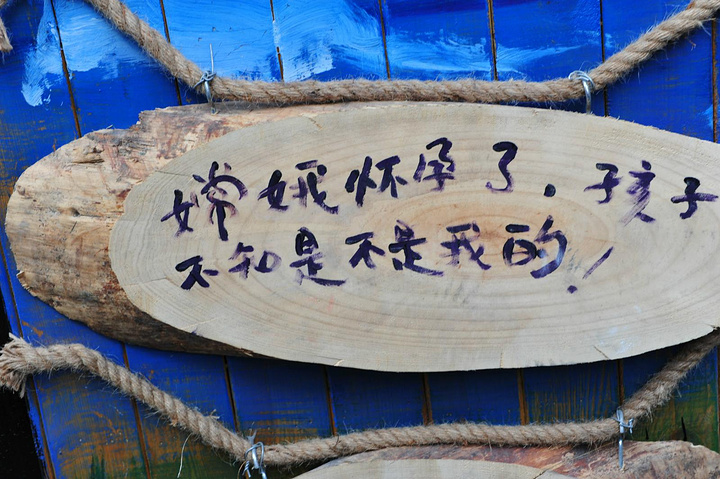 嫦娥怀孕了.孩子
不知是不是我的!